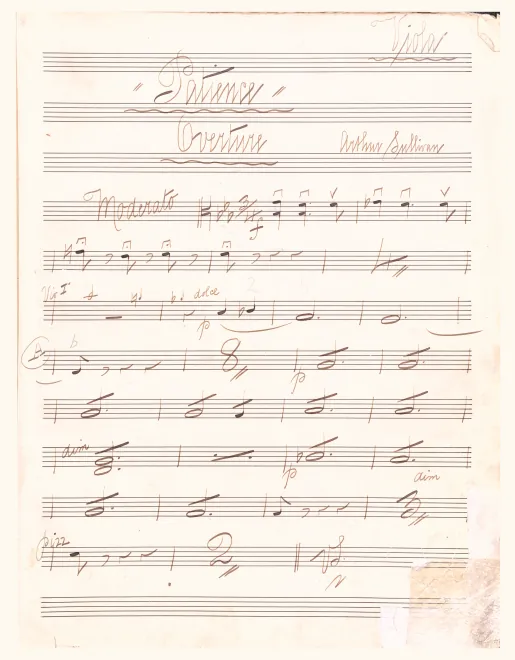 Viola
"Patience"
Overture Arthur Sullivan
Moderato 3/4 f
4
Vio I dolce
p
A
8 p
dim p dim
3
pizz
2 VS